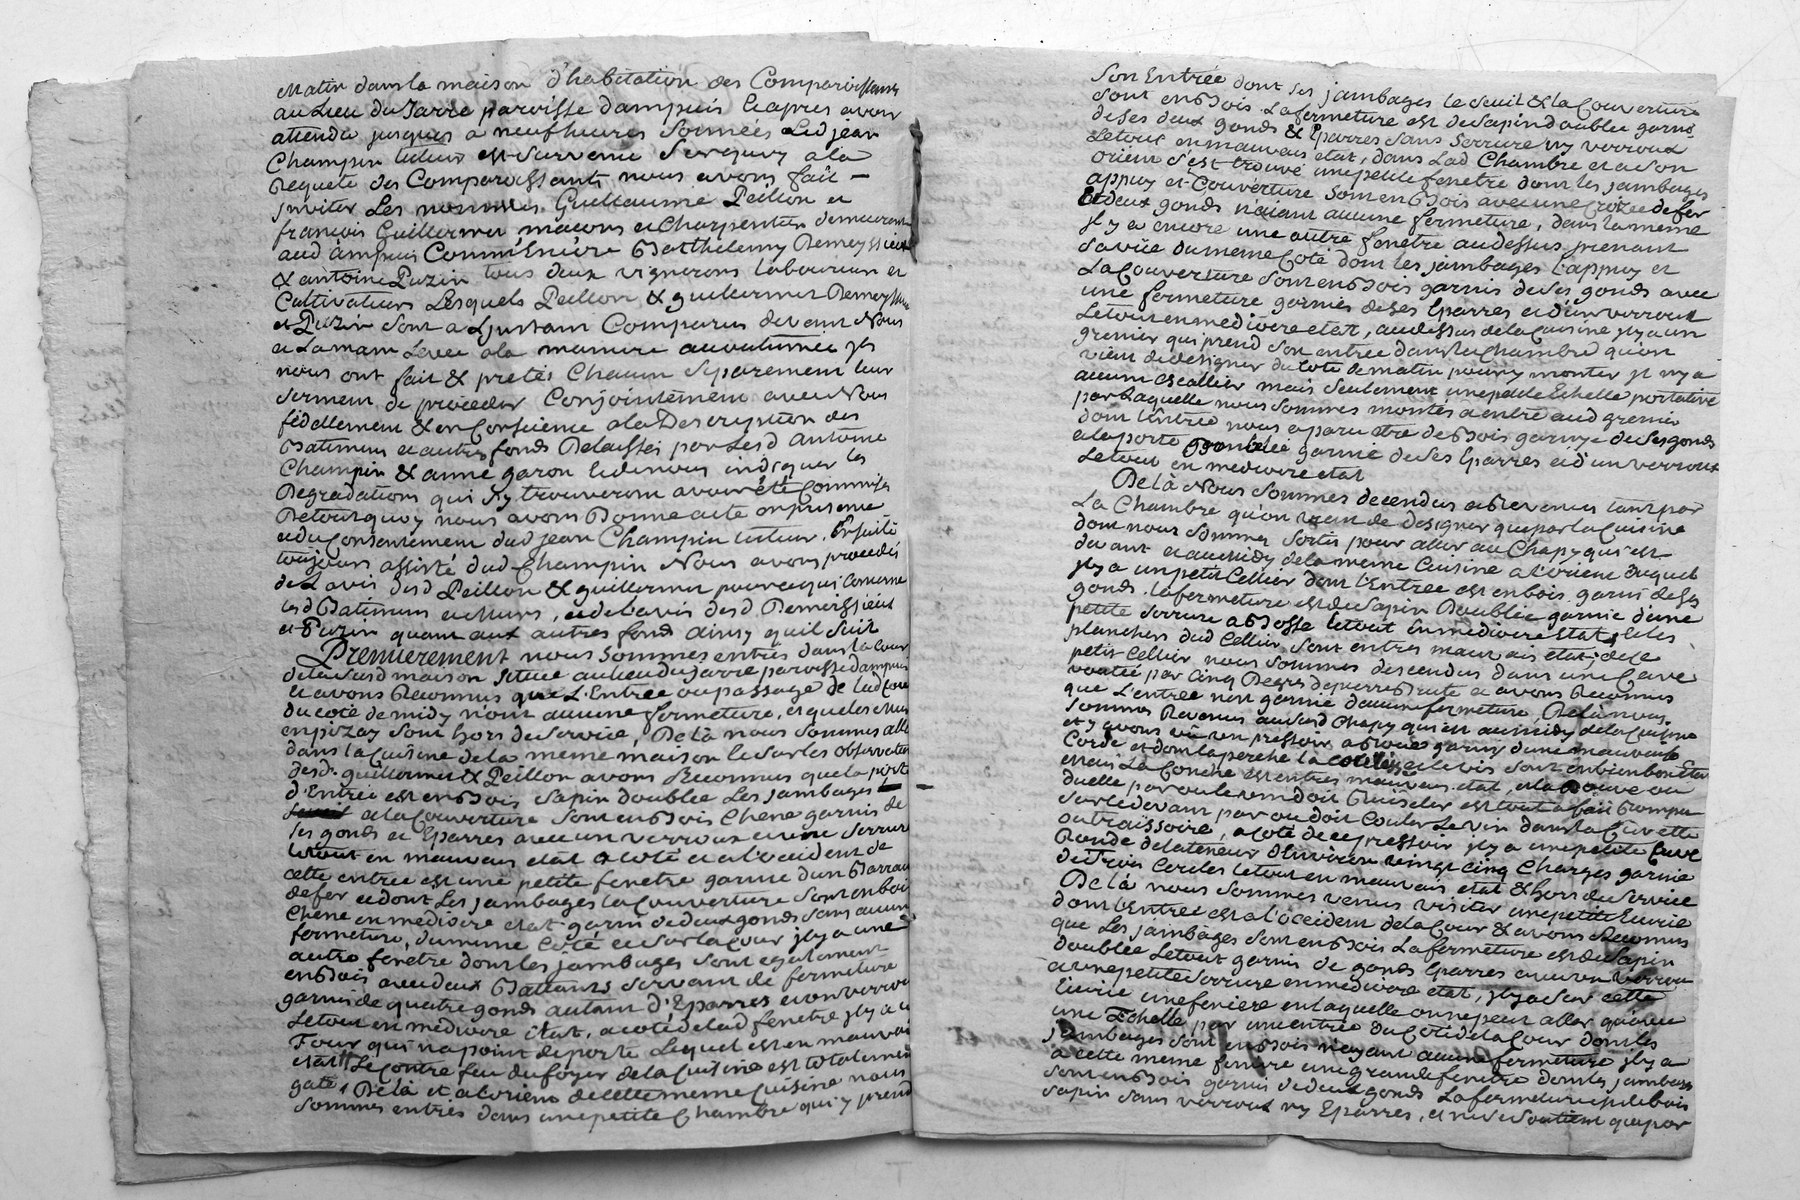 Matin dans la maison d'habitation des Comparoissants
au Lieu du Jarre parroisse dampuis et apres avoir
attendu jusques a neuf heures sonnées Led jean
Champin tuteur est survenu Surquoy a la
Requete des Comparoissants nous avons fait –
jnviter Les nommés Guillaume Peillon et
francois Guillermet maçons et Charpentier demeurant
aud ampuis Comm'Enière Barthelemy Remeyssieux
& antoine Puzin tous deux vignerons laboureurs et
Cultivateurs Lesquels Peillon & guillermet Remeyssieux
et Puzin sont a Ljnstant Comparus devant Nous
et La main Levée a la maniere accoutumée jls
nous ont fait & prétés Chacun Separement leur
serment de proceder Conjointement avec Nous
fidellement & en Conscience a la Description des
Batimens et autres fonds Delaissés par Lesd antoine
Champin & anne garon et de nous indiquer les
Degradations qui s'y trouveront avoir été Commises
De tout quoy nous avons Donné acte en presence
et du Consentement dud jean Champin tuteur. Ensuite
toujours assisté dud Champin Nous avons procedés
de L avis desd Peillon & guillermet pour ce qui Concerne
lesd Batimens et murs, et de l'avis desd Remeissieux
et Puzin quant aux autres fonds ainsy quil suit
Premierement nous sommes entrés dans la Cour
de la susd maison située au lieu du Jarre parroisse d'ampuis
et avons Reconnus que L'Entrée ou passage de lad Cour
du coté de midy n'ont aucune fermeture, et que les murs
en pizay sont hors de service, De là nous sommes allé
dans la Cuisine de la meme maison et sur les observations
desd. guillermet & Peillon avons Reconnus que la porte
d'Entrée est en Bois sapin doublée Les jambages
et la Couverture sont en Bois Chene garnis de
ses gonds et Eparres avec un verroux et une serrure
le tout en mauvais etat a coté et a l'occident de
cette entrée est une petite fenetre garnie d'un Barreau
de fer et dont Les jambages la Couverture sont en bois
Chene en mediocre etat garni de deux gonds sans aucune
fermeture, du meme Coté et sur la cour jl y a une
autre fenetre dont les jambages sont egalement
en Bois avec deux Battants servant de fermeture
garnis de quatre gonds autant d'Eparres et un verroux
Le tout en médiocre état, a coté de lad fenetre jl y a un
Four qui n'a point de porte Lequel est en mauvais
etat Le Contre feu du foyer de la Cuisine est totalement
gaté, De là et a lorient de cette meme Cuisine nous
sommes entrés dans une petite Chambre qui y prend
Son Entrée dont les jambages le seuil & la Couverture
sont en Bois La fermeture est de sapin doublée garnie
de ses deux gonds & Eparres sans serrure ny verroux
Le tout en mauvais etat, dans Lad Chambre et a son
orient s'est trouvé une petite fenetre dont les jambages
appuy et Couverture sont en Bois avec une Croizée de fer
Et deux gonds n'aiant aucune fermeture, dans la meme
jl y a encore une autre fenetre au dessus prenant
sa vüe du meme coté dont les jambages l'appuy et
La Couverture sont en Bois garnis de ses gonds avec
une fermeture garnies de ses Eparres et d'un verroux
Le tout en mediocre etat, au dessus de la Cuisine jl y a un
grenier qui prend son entrée dans la Chambre qu'on
vient de designer du coté de matin pour y monter jl n'y a
aucun escallier mais seulement une petite Echelle portative
par laquelle nous sommes montés a entré aud grenier
dont L'entrée nous a paru etre de Bois garnye de ses gonds
a la porte doublée garnie de ses Eparres et d'un verroux
Le tout en mediocre etat
De là Nous sommes decendus et Revenus tant par
La Chambre qu'on vient de designer que par la Cuisine
dont nous sommes sortis pour aller au Chapy qui est
devant et au midy de la meme Cuisine a l'orient duquel
jl y a un petit Cellier dont l'Entrée est en bois garni de ses
gonds. la fermeture est de Sapin Doublée garnie d'une
petite serrure a Bosse le tout en mediocre etat, et les
planchers dud Cellier sont entres mauvais etat; de Ce
petit Cellier nous sommes descendus dans une Cave
voutée par Cinq Degrés de pierre Brute et avons Reconnus
que L'entrée n'en garnie d'aucune fermeture, De là nous
sommes Revenus au susd Chapy qui est au midy de la Cuisine
et y avons vû un pressoir a roue garny d'une mauvaise
Corde et dont la perche la et le vis sont en bien bon etat
mais La Conche est entres mauvais etat, et la Douve ou
duelle par ou le vin doit Ruisseler est tout a fait Rompue
sur le devant par ou doit Couler Le vin dans la Cuvette
ou traissoire, a coté de ce pressoir jl y a une petite Cuve
Ronde de la teneur d'Environ vingt cinq Charges garnie
de trois Cercles le tout en mauvais etat & hors de service
De là nous sommes venus visiter une petite Ecurie
dont l'Entrée est a l'occident de la Cour & avons Reconnus
que Les jambages sont en Bois La fermeture est de Sapin
doublée Le tout garni de gonds Eparres avec un verroux
a une petite serrure en mediocre etat, jl y a sur cette
Ecurie une feniere en laquelle on ne peut aller qu'avec
une Echelle par une entrée du Coté de la Cour dont les
jambages sont en Bois n'ayant aucune fermeture jl y a
a cette meme feniere une grande fenetre dont les jambages
sont en Bois garnis de deux gonds La fermeture en de bois
sapin sans verroux ny Eparres, et ne se soutient que par